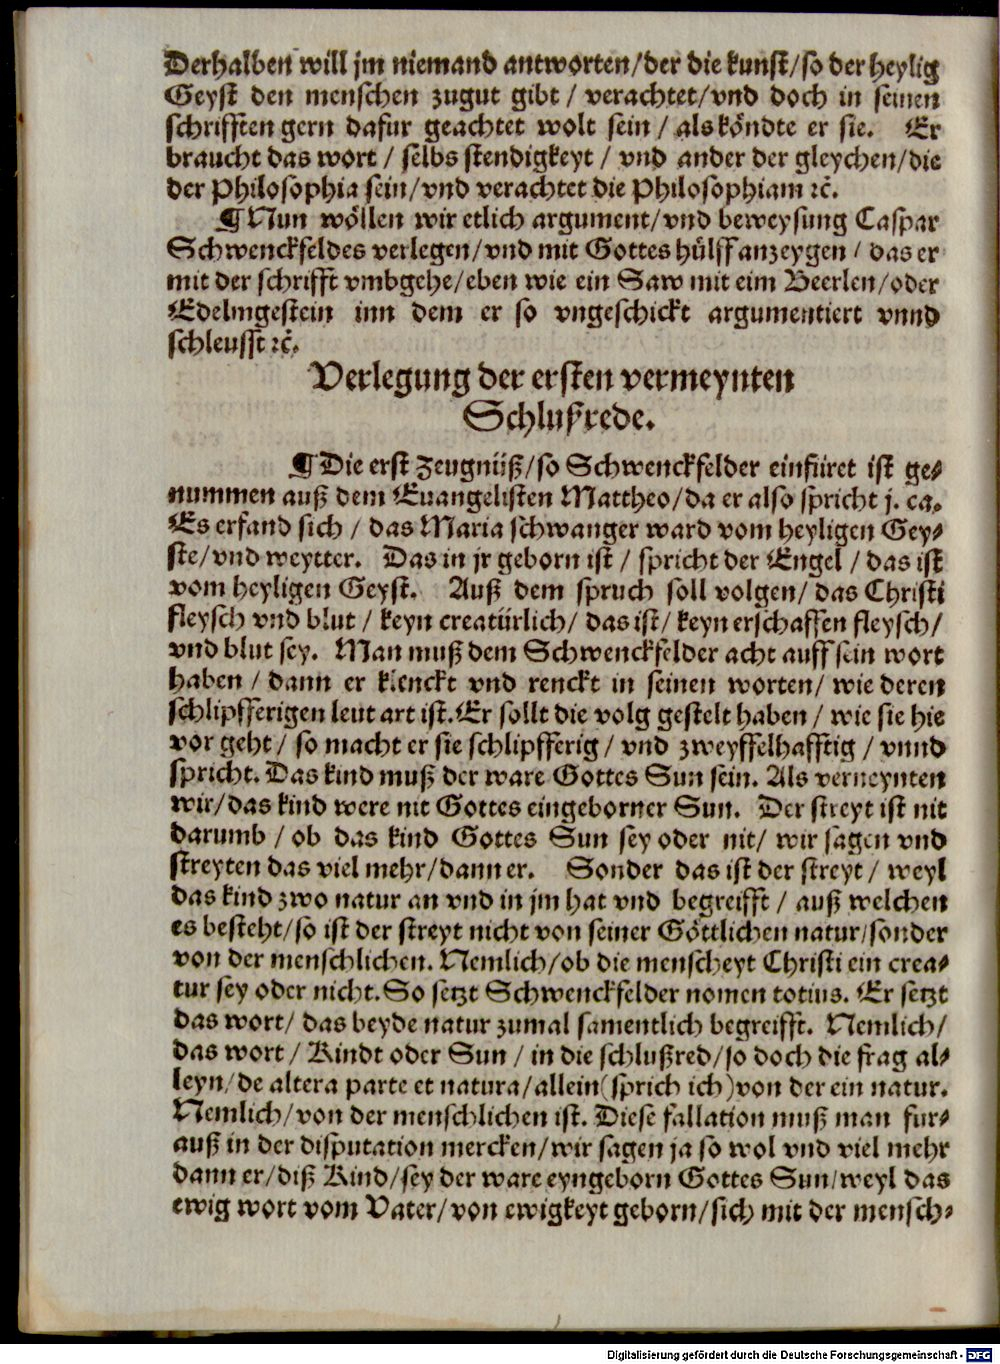 Derhalben will jm niemand antworten/der die kunst/so der heylig
Geyst den menschen zugut gibt / verachtet/vnd doch in seinen
schrifften gern dafur geachtet wolt sein / als köndte er sie. Er
braucht das wort / selbs stendigkeyt / vnd ander der gleychen/die
der Philosophia sein/vnd verachtet die Philosophiam ꝛc̃.
¶Nun wöllen wir etlich argument/vnd beweysung Caspar
Schwenckfeldes verlegen/vnd mit Gottes hülff anzeygen / das er
mit der schrifft vmbgehe/eben wie ein Saw mit eim Beerlen/oder
Edelmgestein inn dem er so vngeschickt argumentiert vnnd
schleusst ꝛc̃.
Verlegung der ersten vermeynten
Schlußrede.
¶Die erst Zeugnüß/so Schwenckfelder einfüret ist ge⸗
nummen auß dem Euangelisten Mattheo/da er also spricht j. ca.
Es erfand sich / das Maria schwanger ward vom heyligen Gey⸗
ste/vnd weytter. Das in jr geborn ist / spricht der Engel / das ist
vom heyligen Geyst. Auß dem spruch soll volgen/ das Christi
fleysch vnd blut / keyn creatürlich/ das ist/ keyn erschaffen fleysch/
vnd blut sey. Man muß dem Schwenckfelder acht auff sein wort
haben / dann er klenckt vnd renckt in seinen worten/ wie deren
schlipfferigen leut art ist. Er sollt die volg gestelt haben / wie sie hie
vor geht / so macht er sie schlipfferig / vnd zweyffelhafftig / vnnd
spricht. Das kind muß der ware Gottes Sun sein. Als verneynten
wir/das kind were nit Gottes eingeborner Sun. Der streyt ist nit
darumb / ob das kind Gottes Sun sey oder nit/ wir sagen vnd
streyten das viel mehr/dann er. Sonder das ist der streyt / weyl
das kind zwo natur an vnd in jm hat vnd begreifft / auß welchen
es besteht/so ist der streyt nicht von seiner Göttlichen natur/sonder
von der menschlichen. Nemlich/ob die menscheyt Christi ein crea⸗
tur sey oder nicht. So setzt Schwenckfelder nomen totius. Er setzt
das wort/ das beyde natur zumal samentlich begreifft. Nemlich/
das wort / Kindt oder Sun / in die schlußred/so doch die frag al⸗
leyn/de altera parte et natura/allein(sprich ich)von der ein natur.
Nemlich/von der menschlichen ist. Diese fallation muß man fur⸗
auß in der disputation mercken/wir sagen ja so wol vnd viel mehr
dann er/diß Kind/sey der ware eyngeborn Gottes Sun/weyl das
ewig wort vom Vater/von ewigkeyt geborn/sich mit der mensch⸗
Digitalisierung gefördert durch die Deutsche Forschungsgemeinschaft - DFG